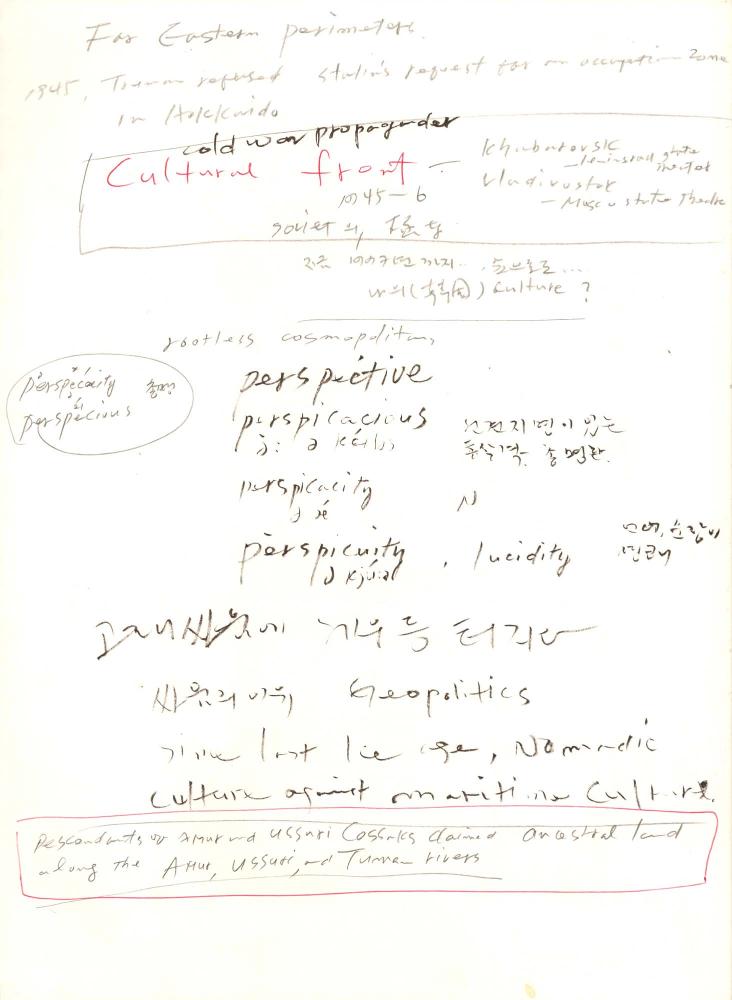 Far Eastern perimeters.
1945, Truman refused Stalin's request for an occupation zone
in Hokkaido
cold war propagander
Cultural front — Khabarovsk
— Leningrad state theater
1945 — 6 Vladivostok
— Moscow state Theatre
soviet 의,
지금 까지.. 으로...
culture ?
rootless cosmopolitan,
perspecacity 총명
perspecious
perspective
perspicacious 선견지명이 있는
총명한
perspicacity N
perspicuity, lucidity
고래싸움에 새우등 터지다
싸움의 이유 Geopolitics
since last Ice age, Nomadic
culture against maritime Culture.
Descendants of Amur and Ussuri Cossaks claimed ancestral land
along the Amur, Ussuri, and Tuman rivers